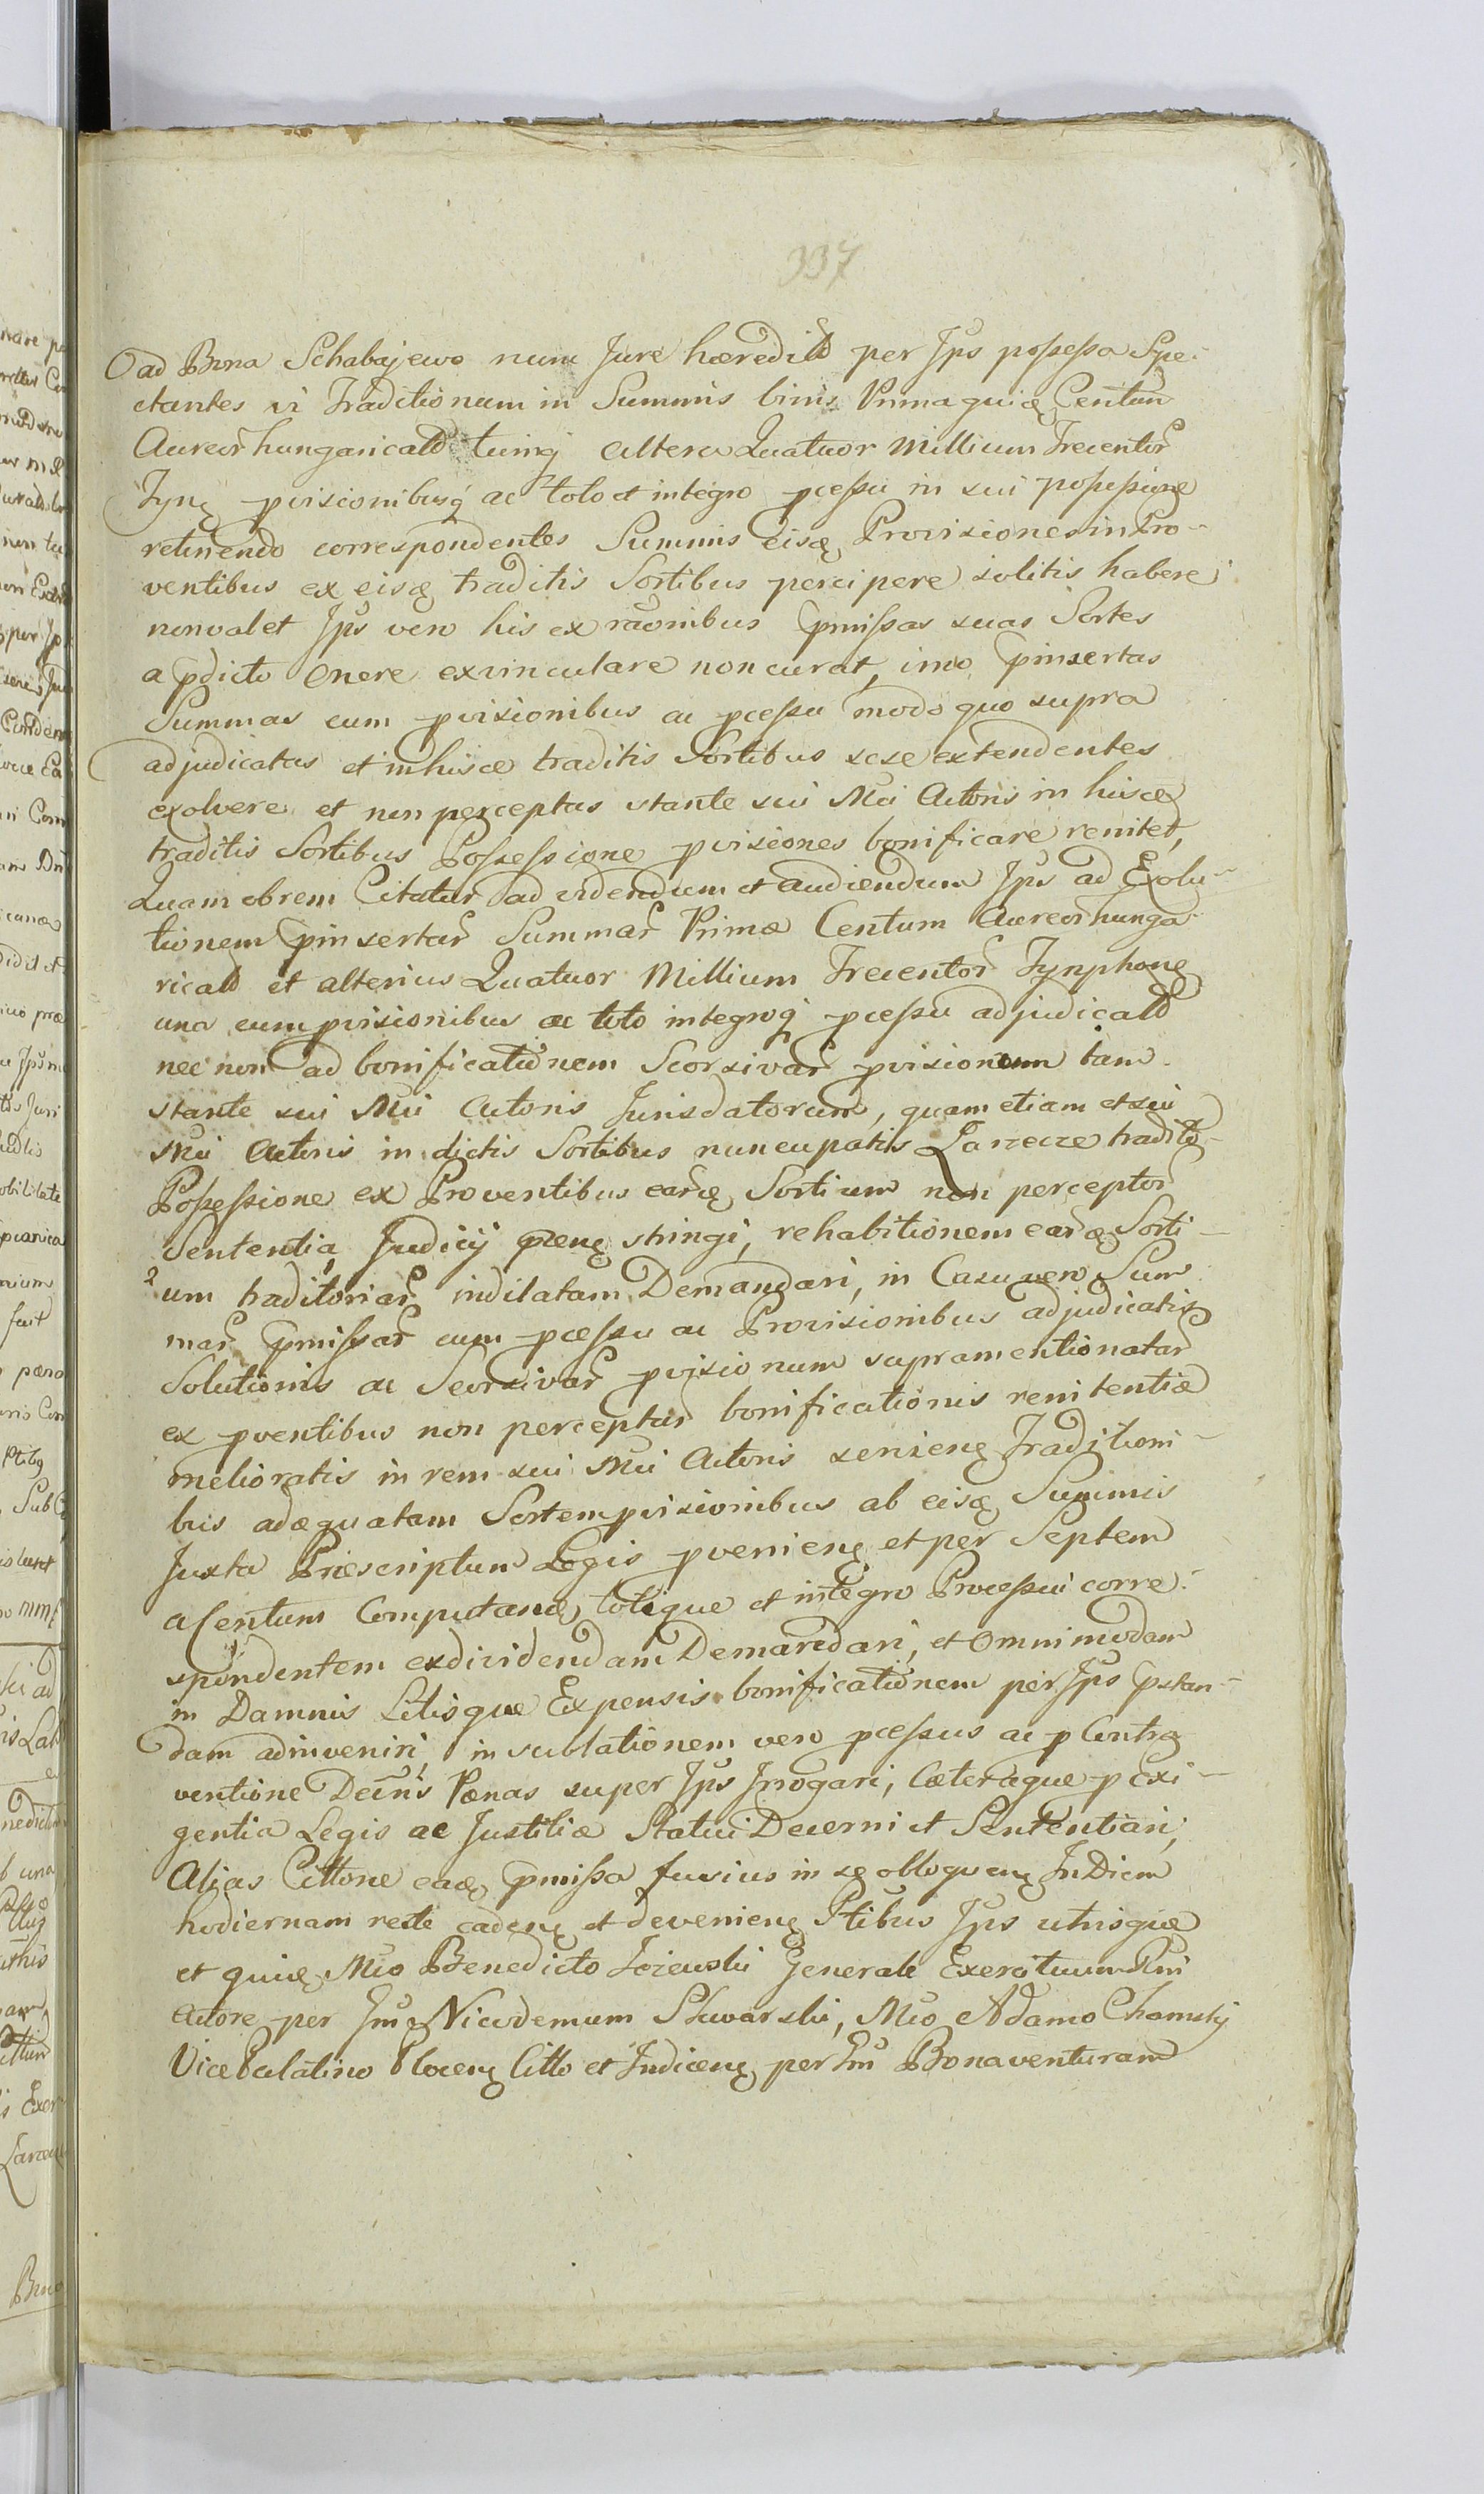 337
ad Bona Schabajewo nunc Jure hæredit̃o per Jps possessa Spe-
ctantes vi Traditionum in Summis binis Prima quide Centum
Aureor hungaricald altera Quatuor Millium Trecentor
Tynf pvisionibusq ac toto et integro pcessu in sui possessione
retinendo correspondentes Summis eisde Provisiones in Pro-
ventibus ex eisde traditis Sortibus percipere solitis habere
non valet Jps vero his ex raonibus pmissas suas Sortes
a pdicto Onere exvinculare non curat, imo pinsertas
Summas cum pvisionibus ac pcessu modo quo supra
adjudicatas et in hisce traditis Sortibus sese extendentes
exolvere et non perceptas stante sui Mci Actoris in hisce
traditis Sortibus Possessione pvisiones bonificare renitet,
Quam obrem Citatur ad videndum et audiendum Jps ad Exolu-
tionem pinsertar Summar Primæ Centum Aureor hunga-
ricald et alterius Quatuor Millium Trecentor Tynphone
una cum pvisionibus ac toto integroq pcessu adjudicald
nec non ad bonificationem Seorsivar pvisionum tam
stante sui Mci Actoris Jurisdatorum, quam etiam et sui
Mci Actoris in dictis Sortibus nuncupatis traditis
Possessione ex Proventibus earde Sortium non perceptor
Sententia Judicij præne stringi, rehabitionem earde Sorti-
um traditoriar indilatam Demandari, in Casu vero Sum
mar pmissar cum pcessu ac Provisionibus adjudicatis
Solutionis ac Seorsivar pvisionum supramentionatar
ex pventibus non perceptar bonificationis renitentiæ
melioratis in rem sui Mci Actoris Traditioni-
bus adæquatam Sortem pvisionibus ab eisde Summis
Juxta Præscriptum Legis pveniene et per Septem
a Centum Computande, totique et integro Processui corre-
spondentem exdividendam Demandari, et Omnimodam
in Damnis Litisque Expensis bonificationem per Jps pstan-
dam adinveniri, in sublationem vero pcessus ac p Contra
ventione Decins Pænas super Jps Jrrogari, Cæteraque p Exi-
gentia Legis ac Justitiæ Statui Decerni et Sententiari,
Alias Cittone eade pmissa fusius in se obloquene In Diem
hodiernam recte cadene et deveniene Ptibus Jps utrisque
et quide Mco Benedicto Generale Exercituum Rni
Actore per Jm Nicodemum Skwarski, Mco Adamo Chamski
Vice Palatino Plocene Citto et Judicene per Jm Bonaventuram